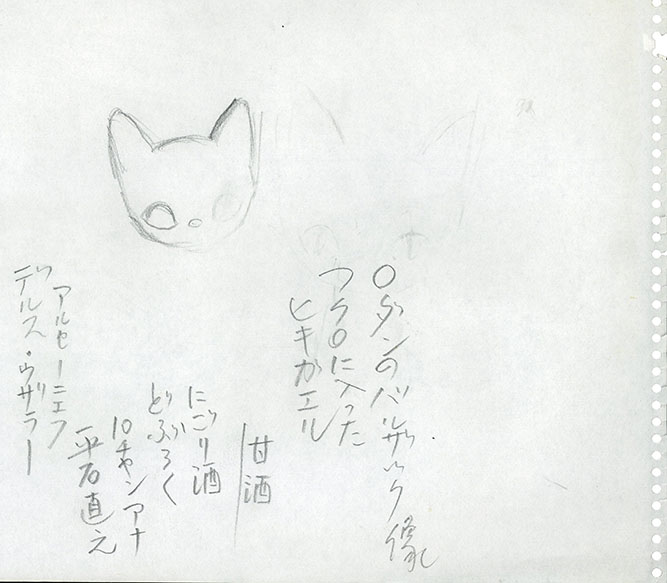 ロダンのバルザック像
フクロに入った
ヒキガエル
甘酒
にごり酒
どぶろく
10チャンアナ
平石直之
アルセーニエフ
デルス・ウザーラー